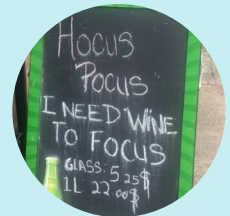 Hocus
Pocus
I NEED WINE
TO FOCUS
GLASS: 5 25$
1L: 22 00$